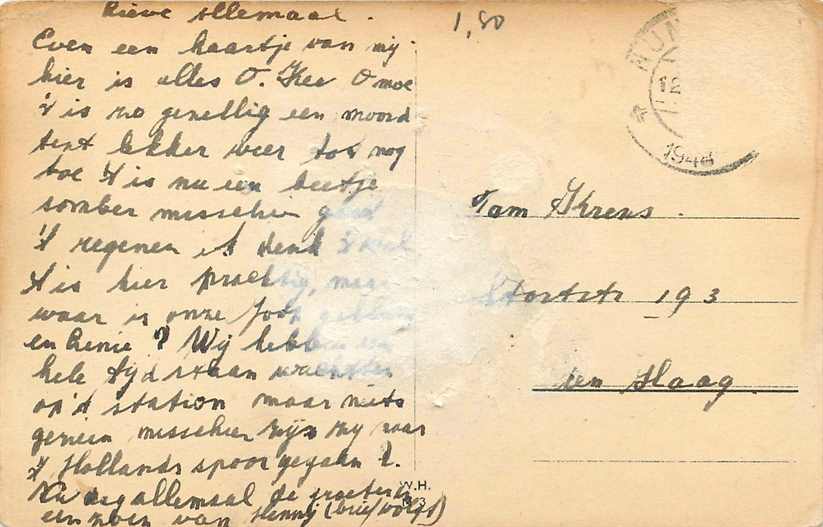 Lieve allemaal.
Even een kaartje van mij.
hier is alles O. Kee O moe
't is zo gezellig een moord
tent lekker weer tot nog
toe 't is nu een beetje
somber misschien gaat
't regenen ik denk 't wel
't is hier prachtig, maar
waar is onze Joop gebleven
en Renie? Wij hebben een
hele tijd staan wachten
op 't station maar niets
gezien misschien zijn zij naar
't Hollands spoor gegaan?.
Nu dag allemaal de groeten
een zoen van Henny (brief volgt)
W.H.
1,50
NUN
12
1944
Fam Krens.
193
den Haag.